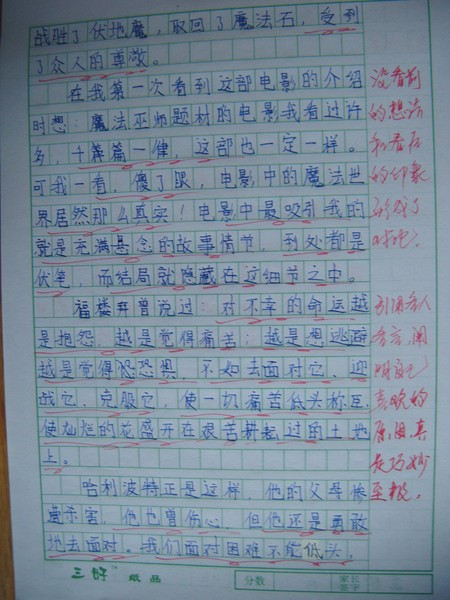 战胜了伏地魔，取回了魔法石，受到
了众人的尊敬。
在我第一次看到这部电影的介绍
时想：魔法巫师题材的电影我看过许
多，千篇一律，这部也一定一样。
可我一看，傻了眼，电影中的魔法世
界居然那么真实！电影中最吸引我的
就是充满悬念的故事情节，到处都是
伏笔，而结局就隐藏在这细节之中。
福楼拜曾说过：对不幸的命运越
是抱怨，越是觉得痛苦；越是想逃避
越是觉得恐惧，不如去面对它、迎
战它、克服它，使一切痛苦低头称臣，
使灿烂的花盛开在艰苦耕耘过的土地
上。
哈利波特正是这样，他的父母惨
遭杀害，他也曾伤心，但他还是勇敢
地去面对。我们面对困难不能低头，
没看前
的想法
和看后
的印象
形成了
对比。
引用名人
名言，阐
明自己
喜欢的
原因，真
是巧妙
至极。
三好 纸品
分数
家长
签字